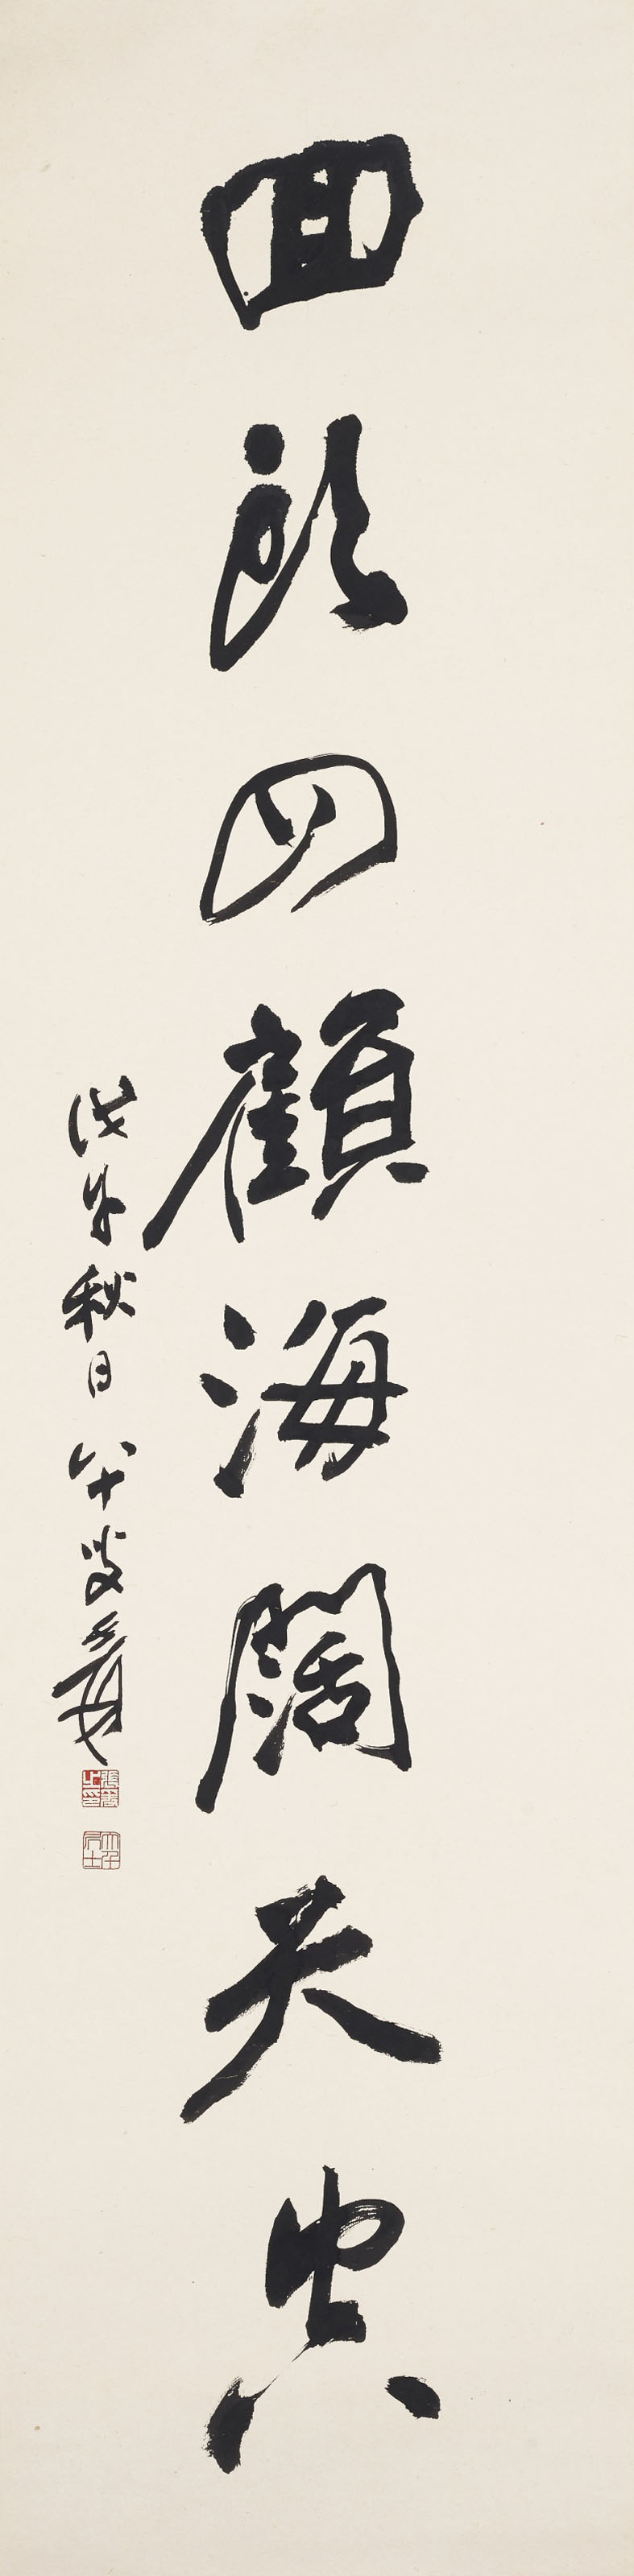 回頭四顧海闊天
戊午秋日八十叟爰
張爰之印
大千居士